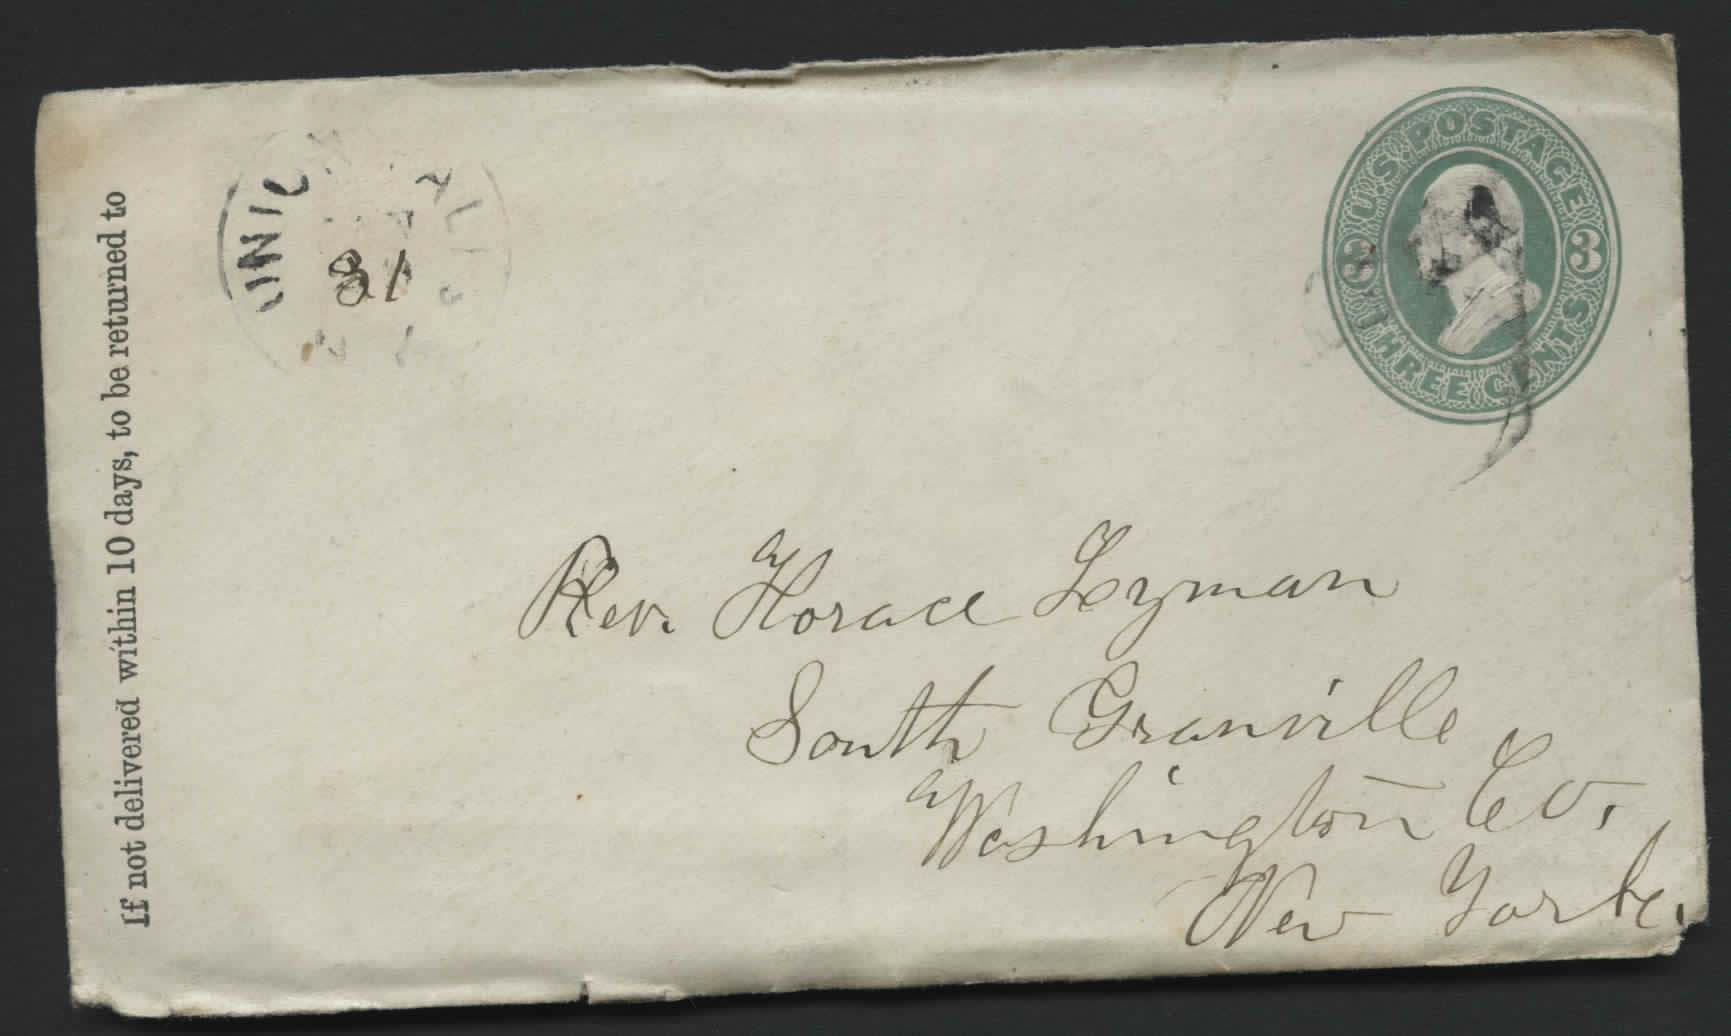 If not delivered within 10 days, to be returned to
31
U.S. POSTAGE
3 3
THREE CENTS
Rev. Horace Lyman
South Granville
Washington Co.
New York.